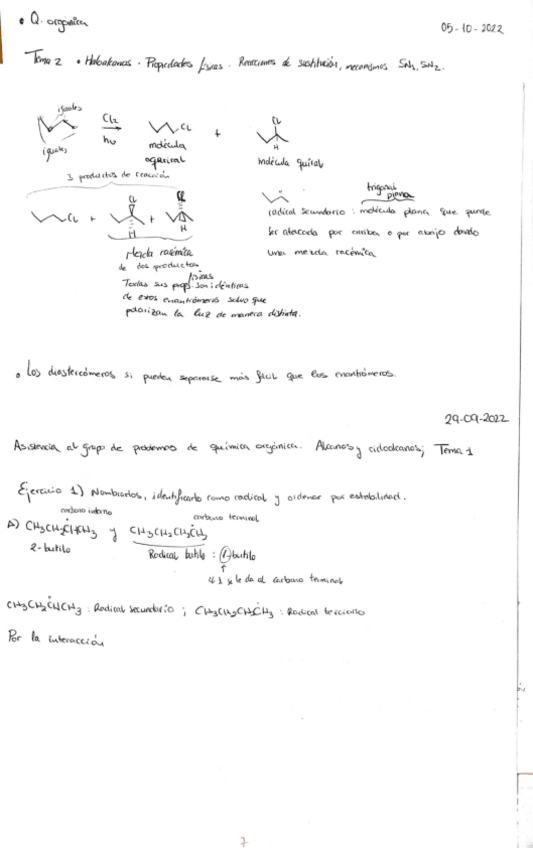 • Q. orgánica
05-10-2022
Tema 2 • Haloalcanos. Propiedades físicas. Reacciones de sustitución, mecanismos SN1, SN2.
iguales
iguales
Cl2
hν
Cl
molécula
aquiral
+
Cl
H
molécula quiral
3 productos de reacción
Cl + Cl H + Cl H
Mezcla racémica
de dos productos
Todas sus props. físicas son idénticas
de estos enantiómeros salvo que
polarizan la luz de manera distinta.
trigonal
plana
radical secundario: molécula plana que puede
ser atacada por arriba o por abajo dando
una mezcla racémica
• Los diastereómeros si pueden separarse más fácil que los enantiómeros.
29-09-2022
Asistencia al grupo de problemas de química orgánica. Alcanos y cicloalcanos; Tema 1
Ejercicio 1) Nombrarlos, identificarlo como radical y ordenar por estabilidad.
carbono interno
carbono terminal
A) CH3CH2ĊHCH3 y CH3CH2CH2ĊH2
2-butilo
Radical butilo: 1-butilo
el 1 se le da al carbono terminal
CH3CH2ĊHCH3: Radical secundario; CH3CH2CHĊH3: Radical terciario
Por la interacción
7